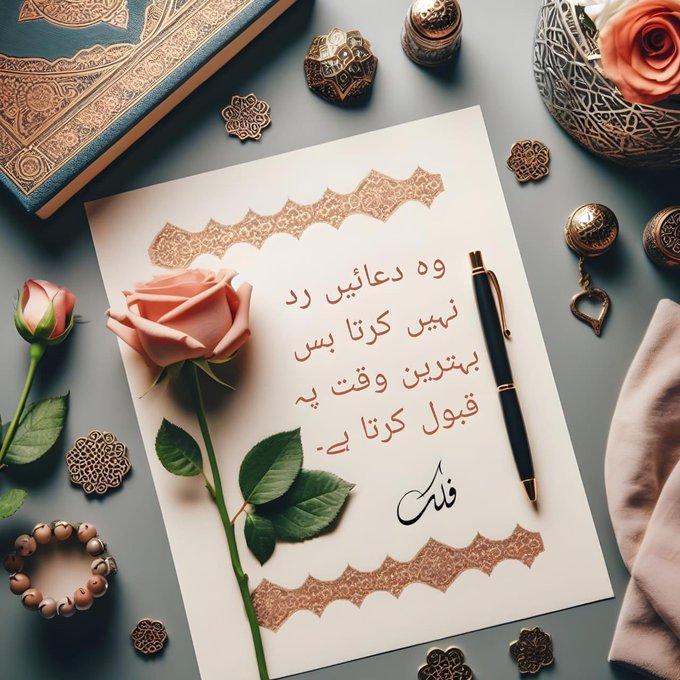 وہ دعائیں رد
نہیں کرتا بس
بہترین وقت پہ
قبول کرتا ہے۔
فلک